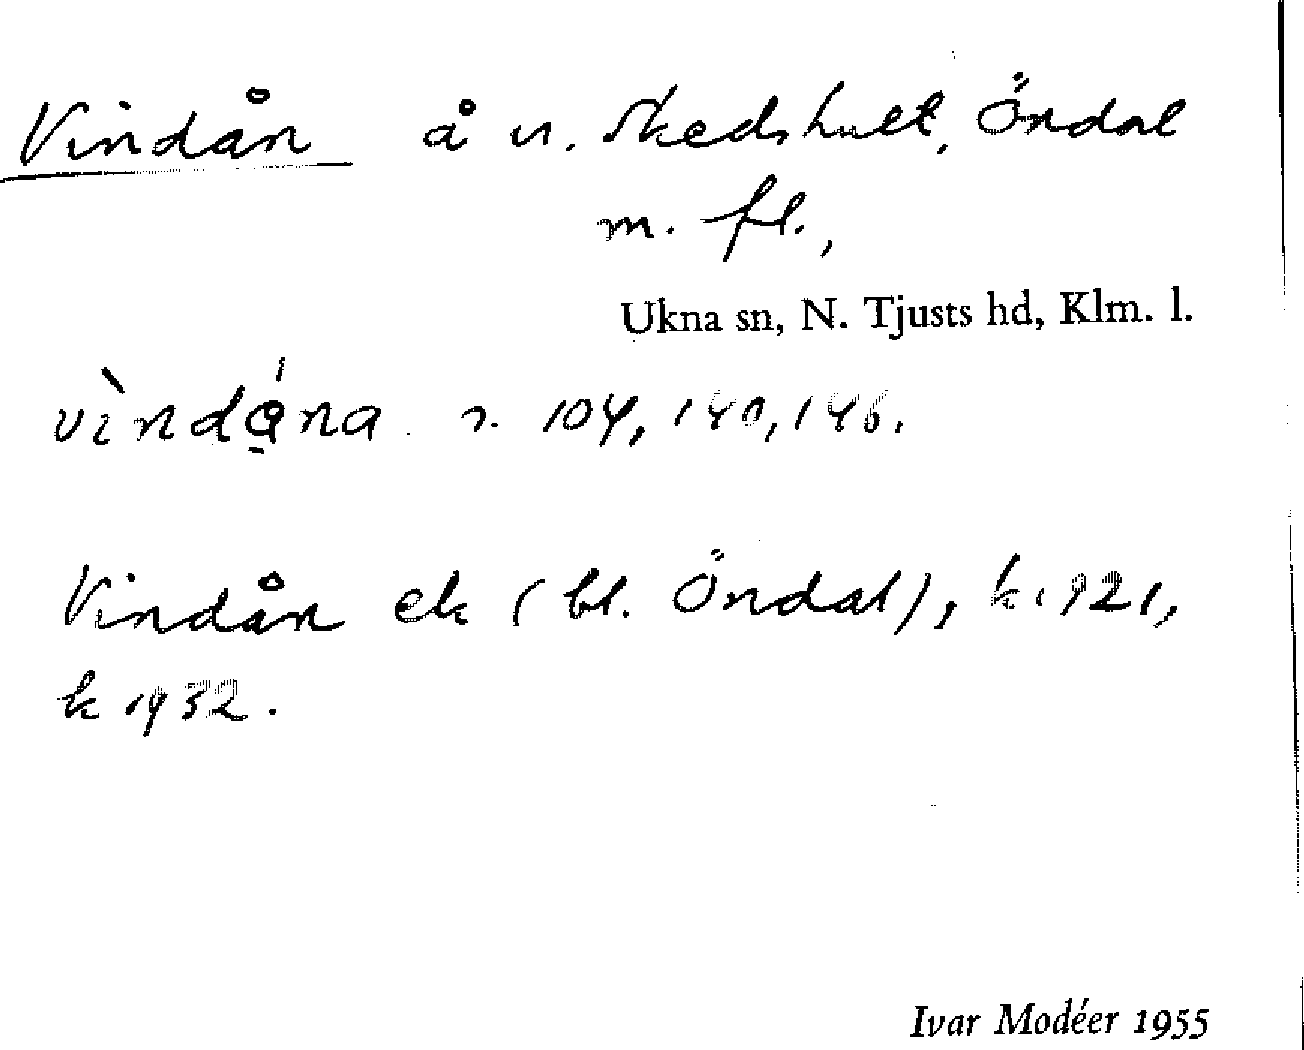 Vindån å u. Skedshult, Öndal
m. fl.,
Ukna sn, N. Tjusts hd, Klm. l.
vìndá̰na s. 104, 140, 146.
Vindån ek (bl. Öndal), k 1921,
k 1932.
Ivar Modéer 1955